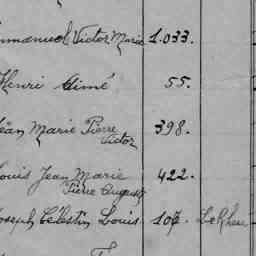 mmanuel Victor Marie 1.033.
Henri Aimé 55.
Jean Marie Pierre 398.
Victor
Louis Jean Marie 422.
Pierre August
Joseph Célestin Louis 106. Le Rheu